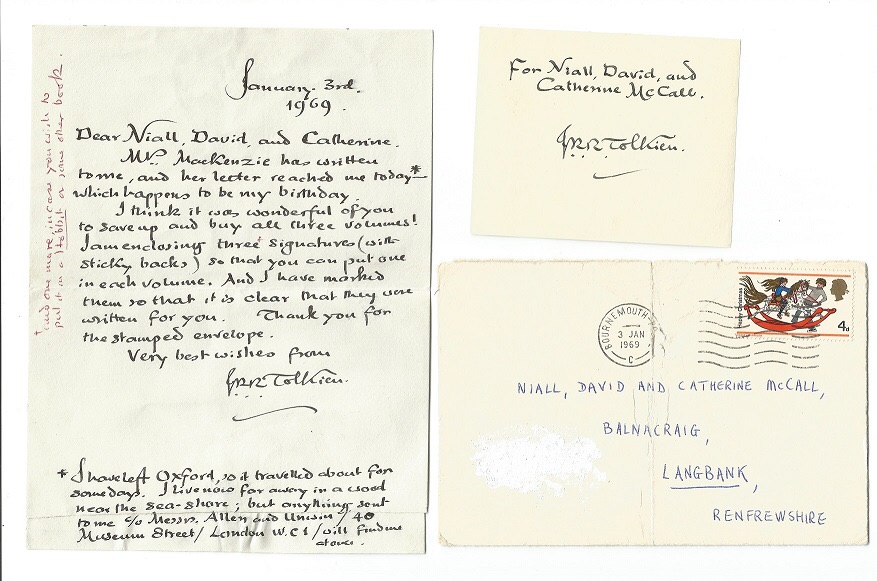 January. 3rd.
1969.
Dear Niall, David, and Catherine.
Mrs. MacKenzie has written
to me, and her letter reached me today*
which happens to be my birthday.
I think it was wonderful of you
to save up and buy all three volumes!
I am enclosing three† signatures (with
sticky backs) so that you can put one
in each volume. And I have marked
them so that it is clear that they were
written for you. Thank you for
the stamped envelope.
Very best wishes from
J.R.R. Tolkien.
* I have left Oxford, so it travelled about for
some days. I live now far away in a wood
near the sea-shore; but anything sent
to me c/o Messrs. Allen and Unwin / 40
Museum Street / London W.C.1 / will find me
at once.
† and one more, in case you wish to
put it in a Hobbit or some other book.
For Niall, David, and
Catherine McCall.
J.R.R. Tolkien.
BOURNEMOUTH-
3 JAN
1969
C
Happy Christmas
4d
NIALL, DAVID AND CATHERINE McCALL,
BALNACRAIG,
LANGBANK,
RENFREWSHIRE